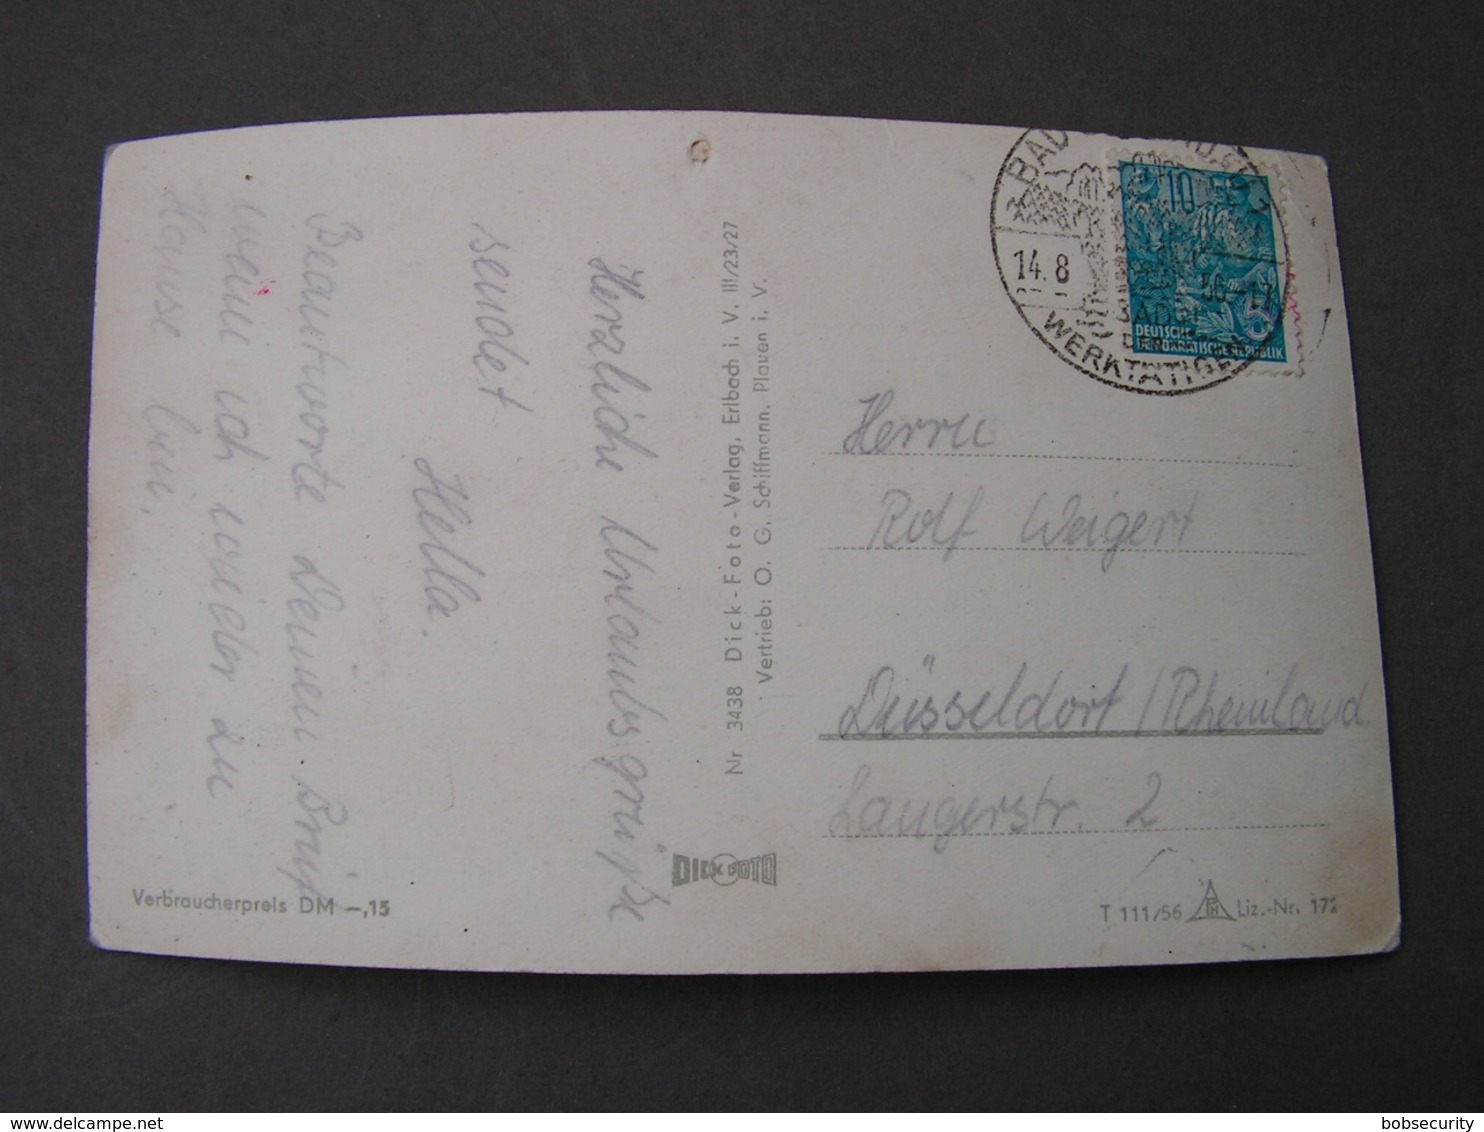 Herzliche Urlaubsgrüße
sendet
Hella.
Beantworte Deinen Brief
wenn ich wieder zu
Hause bin.
Verbraucherpreis DM —,15
Nr 3438 Dick-Foto-Verlag, Erlbach i. V. III/23/27
Vertrieb: O. G. Schiffmann, Plauen i. V.
DICK FOTO
BAD
14.8
56-17
BAD
DER
WERKTÄTIGEN
10
DEUTSCHE
DEMOKRATISCHE REPUBLIK
Herrn
Rolf Weigert
Düsseldorf / Rheinland.
Langerstr. 2
T 111/56 Liz.-Nr. 172
bobsecurity